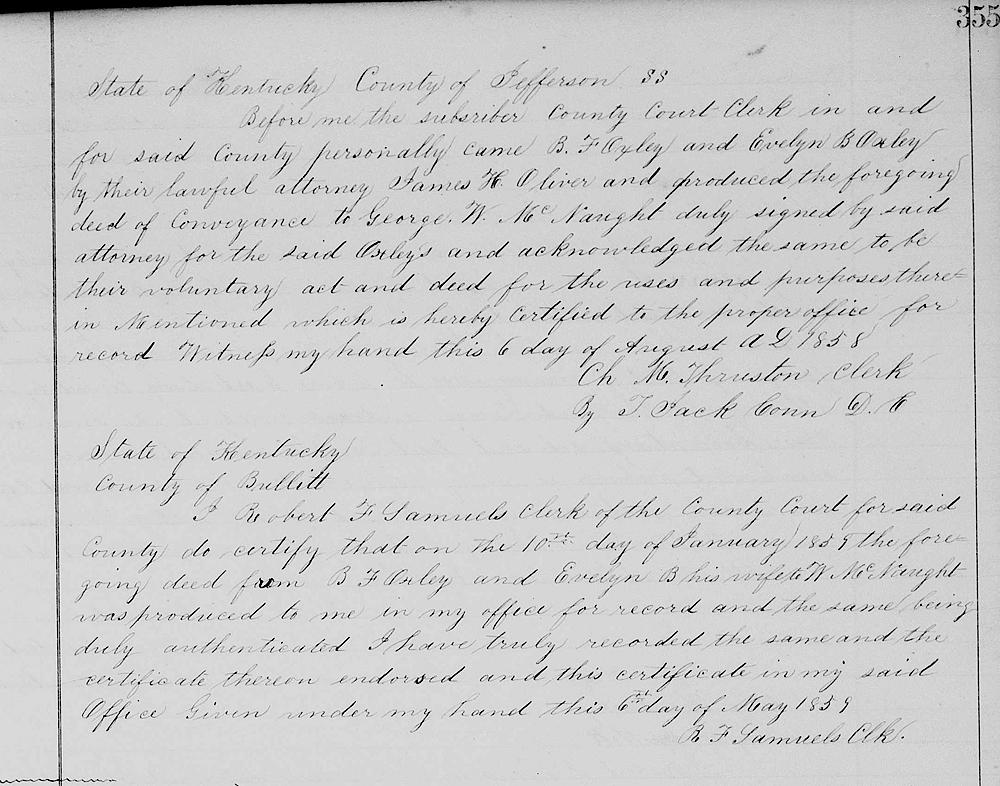 355
State of Kentucky County of Jefferson SS
Before me the subsriber County Court Clerk in and
for said County personally came B. F Oxley and Evelyn B Oxley
by their lawful attorney James H. Oliver and produced the foregoing
deed of Conveyance to George. W. McNaught duly signed by said
attorney for the said Oxley's and acknowledged the same to be
their voluntary act and deed for the uses and purposes there=
in Mentioned which is hereby Certified to the proper office for
record Witness my hand this 6 day of August A D 1858
Ch M. Thruston Clerk
By T. Jack Conn D. C
State of Kentucky
County of Bullitt
I Robert F Samuels Clerk of the County Court for said
County do certify that on the 10th day of January 1859 the fore=
going deed from B F Oxley and Evelyn B his wife to W McNaught
was produced to me in my office for record and the same being
duly authenticated I have truly recorded the same and the
certificate thereon endorsed and this certificate in my said
Office Given under my hand this 6th day of May 1859
R F Samuels Clk.